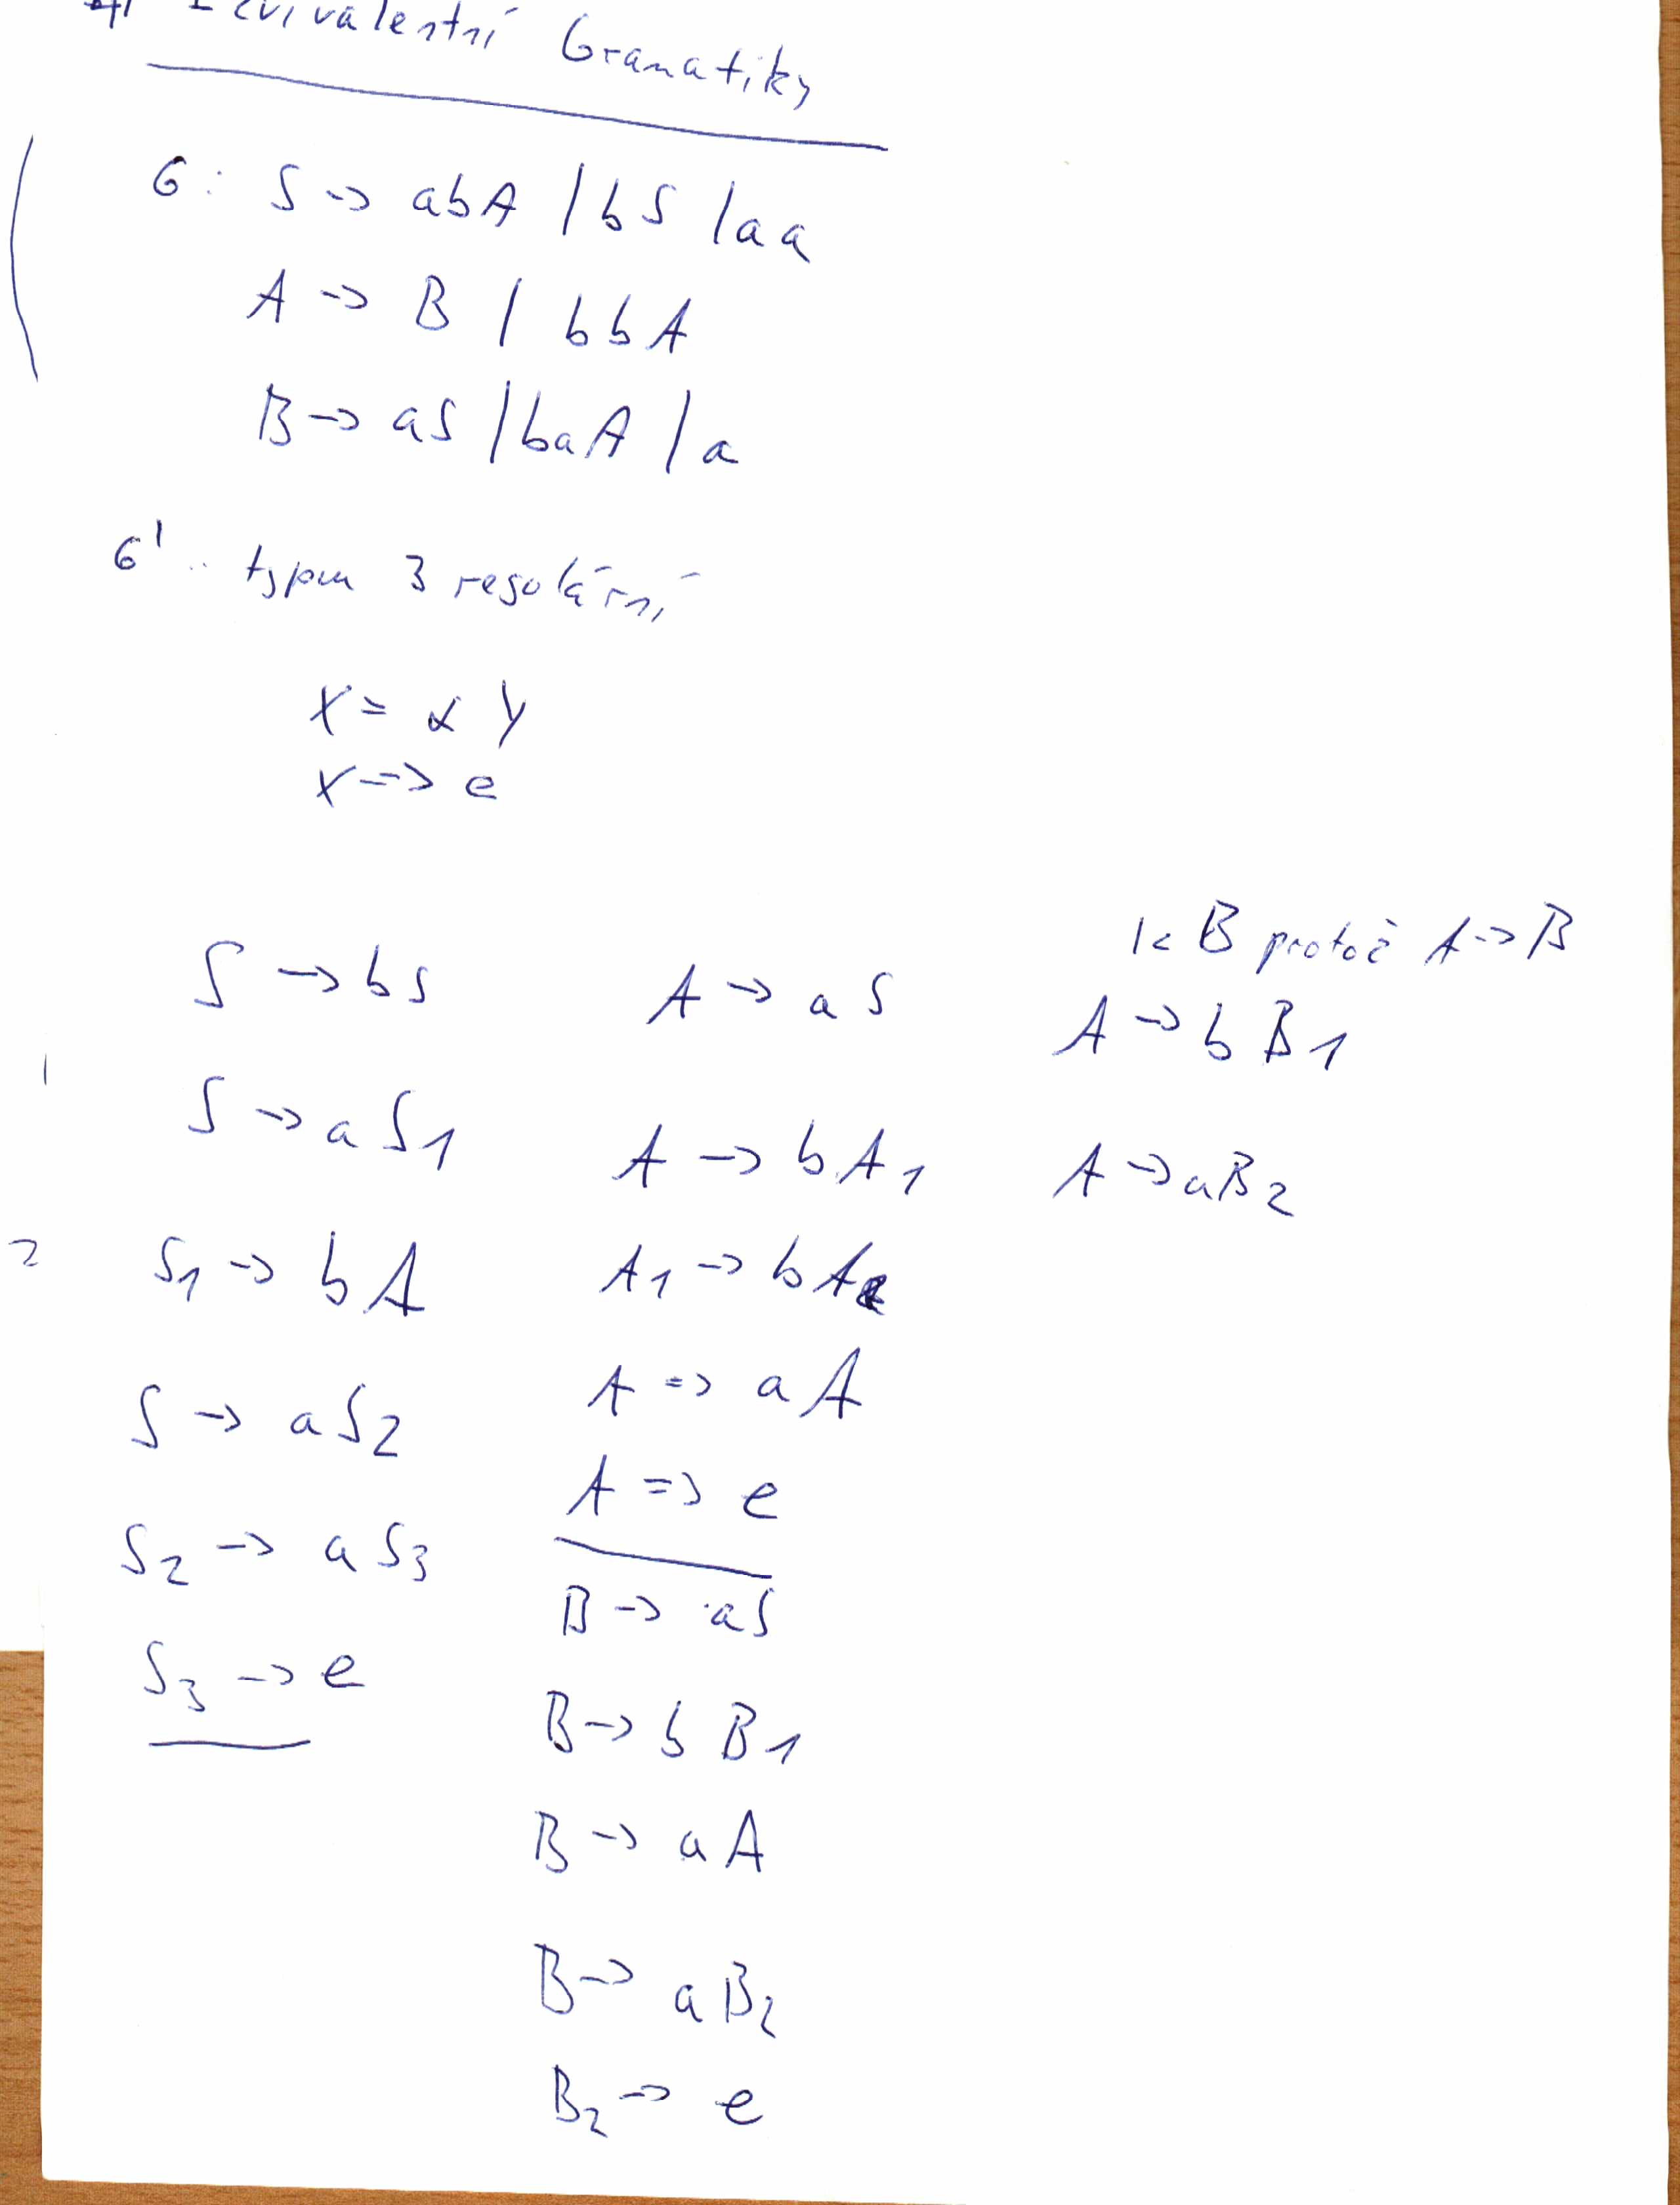 Gramatiky
G: S -> abA | bS | aa
A -> B | bbA
B -> aS | baA | a
G' .. typu 3 regulární
X = α Y
X -> e
S -> bS
S -> aS1
S1 -> bA
S -> aS2
S2 -> aS3
S3 -> e
A -> aS
A -> bA1
A1 -> bA
A => aA
A => e
B -> aS
B -> bB1
B -> aA
B -> aB2
B2 -> e
B protož A -> B
A -> bB1
A -> aB2